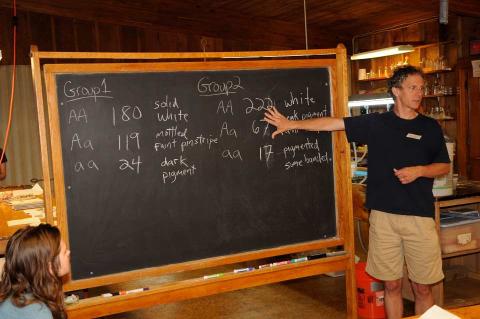 Group1
AA 180 solid white
Aa 119 mottled faint pinstripe
aa 24 dark pigment
Group2
AA 222 white pigment
Aa
aa 17 pigmented some banded.